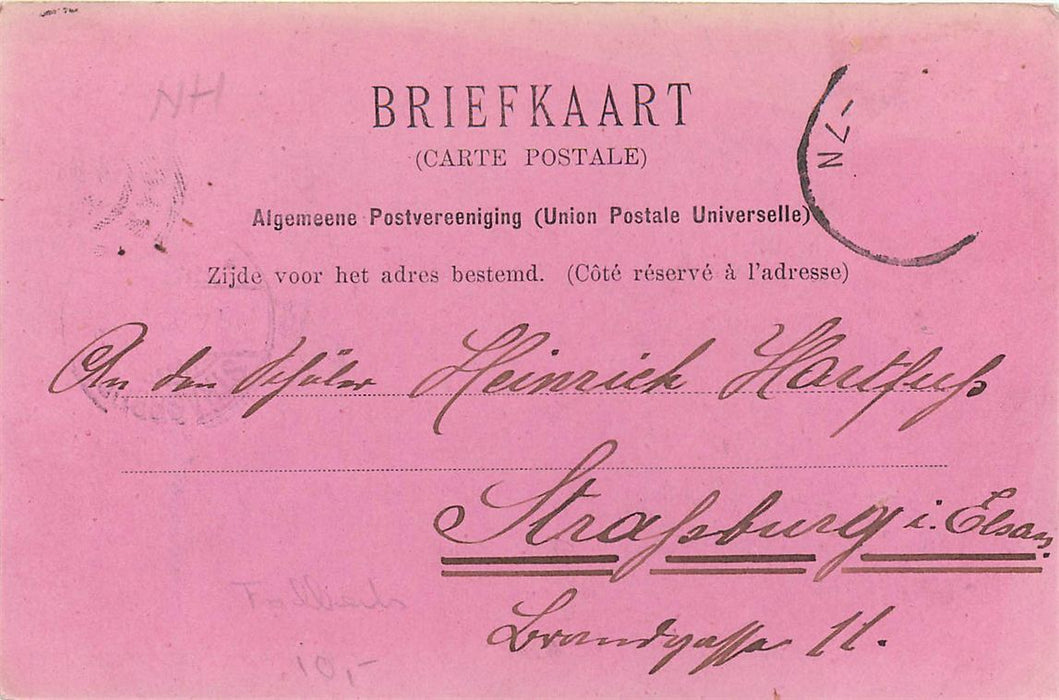 NH
BRIEFKAART
(CARTE POSTALE)
-7N
Algemeene Postvereeniging (Union Postale Universelle)
Zijde voor het adres bestemd. (Côté réservé à l'adresse)
An den Schüler Heinrich Hartfuß
Straßburg i. Elsass.
Brandgasse 11.
10,-